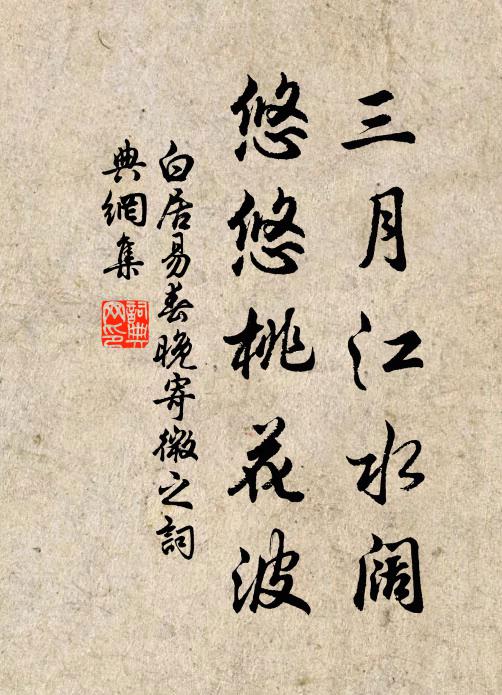 三月江水阔
悠悠桃花波
白居易春晚寄微之詞
典網集
詞典
网印